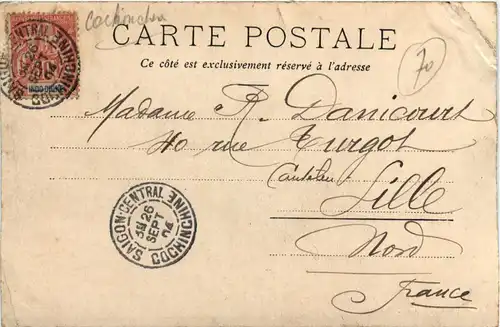 Cochinchin
CARTE POSTALE
Ce côté est exclusivement réservé à l'adresse
70
INDO-CHINE
SAIGON-CENTRAL
COCHINCHINE
Madame R. Danicourt
40 rue Turgot
Lille
Nord
France
SAIGON-CENTRAL
26
SEPT
04
COCHINCHINE